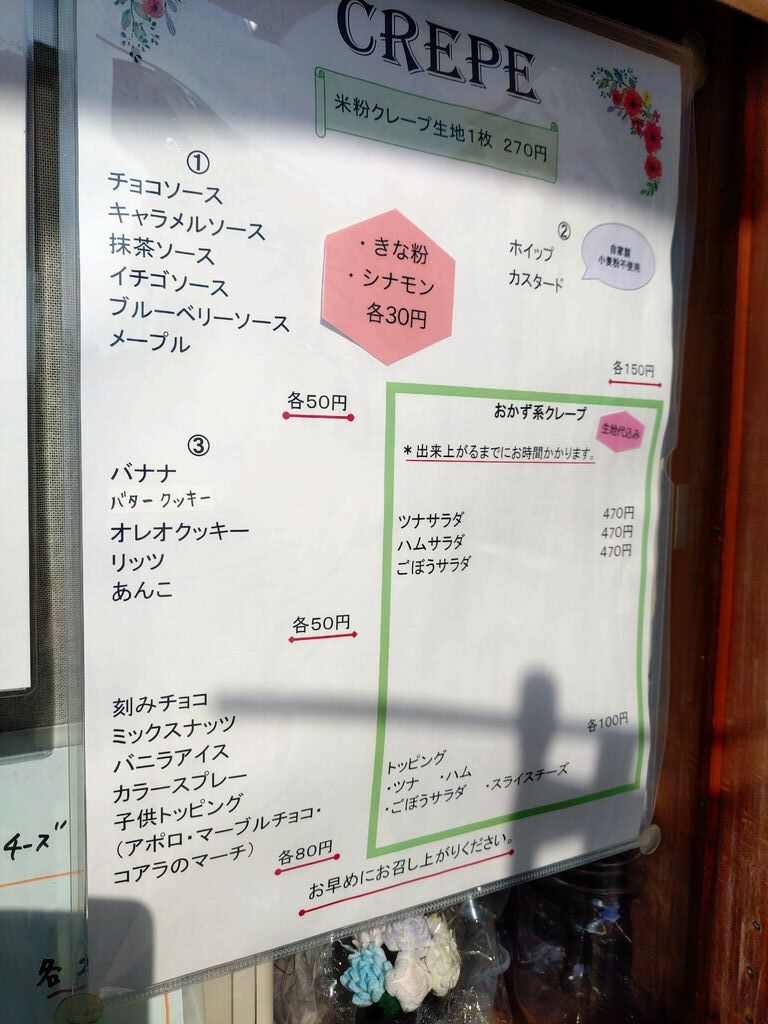 CREPE
米粉クレープ生地1枚 270円
①
チョコソース
キャラメルソース
抹茶ソース
イチゴソース
ブルーベリーソース
メープル
各50円
・きな粉
・シナモン
各30円
②
ホイップ
カスタード
自家製
小麦粉不使用
各150円
③
バナナ
バタークッキー
オレオクッキー
リッツ
あんこ
各50円
刻みチョコ
ミックスナッツ
バニラアイス
カラースプレー
子供トッピング
（アポロ・マーブルチョコ・
コアラのマーチ）
各80円
おかず系クレープ
生地代込み
＊出来上がるまでにお時間かかります。
ツナサラダ 470円
ハムサラダ 470円
ごぼうサラダ 470円
各100円
トッピング
・ツナ ・ハム
・ごぼうサラダ ・スライスチーズ
お早めにお召し上がりください。
チーズ
各